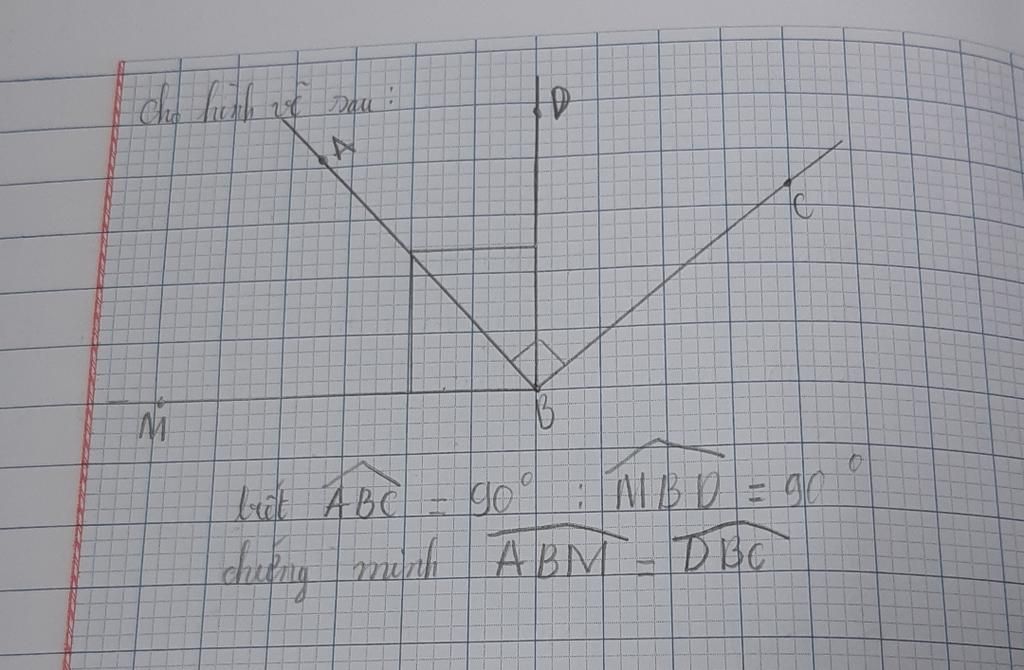 Cho hình vẽ sau:
A
D
C
M
B
biết ABC = 90° ; MBD = 90°
chứng minh ABM = DBC